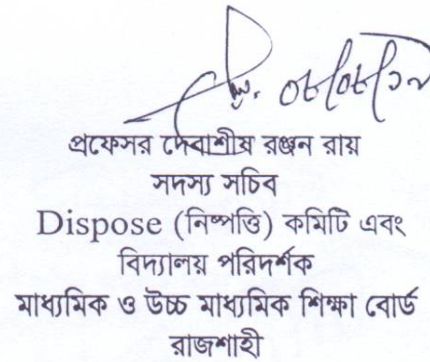 ০৮/০৮/১৯
প্রফেসর দেবাশীষ রঞ্জন রায়
সদস্য সচিব
Dispose (নিষ্পত্তি) কমিটি এবং
বিদ্যালয় পরিদর্শক
মাধ্যমিক ও উচ্চ মাধ্যমিক শিক্ষা বোর্ড
রাজশাহী